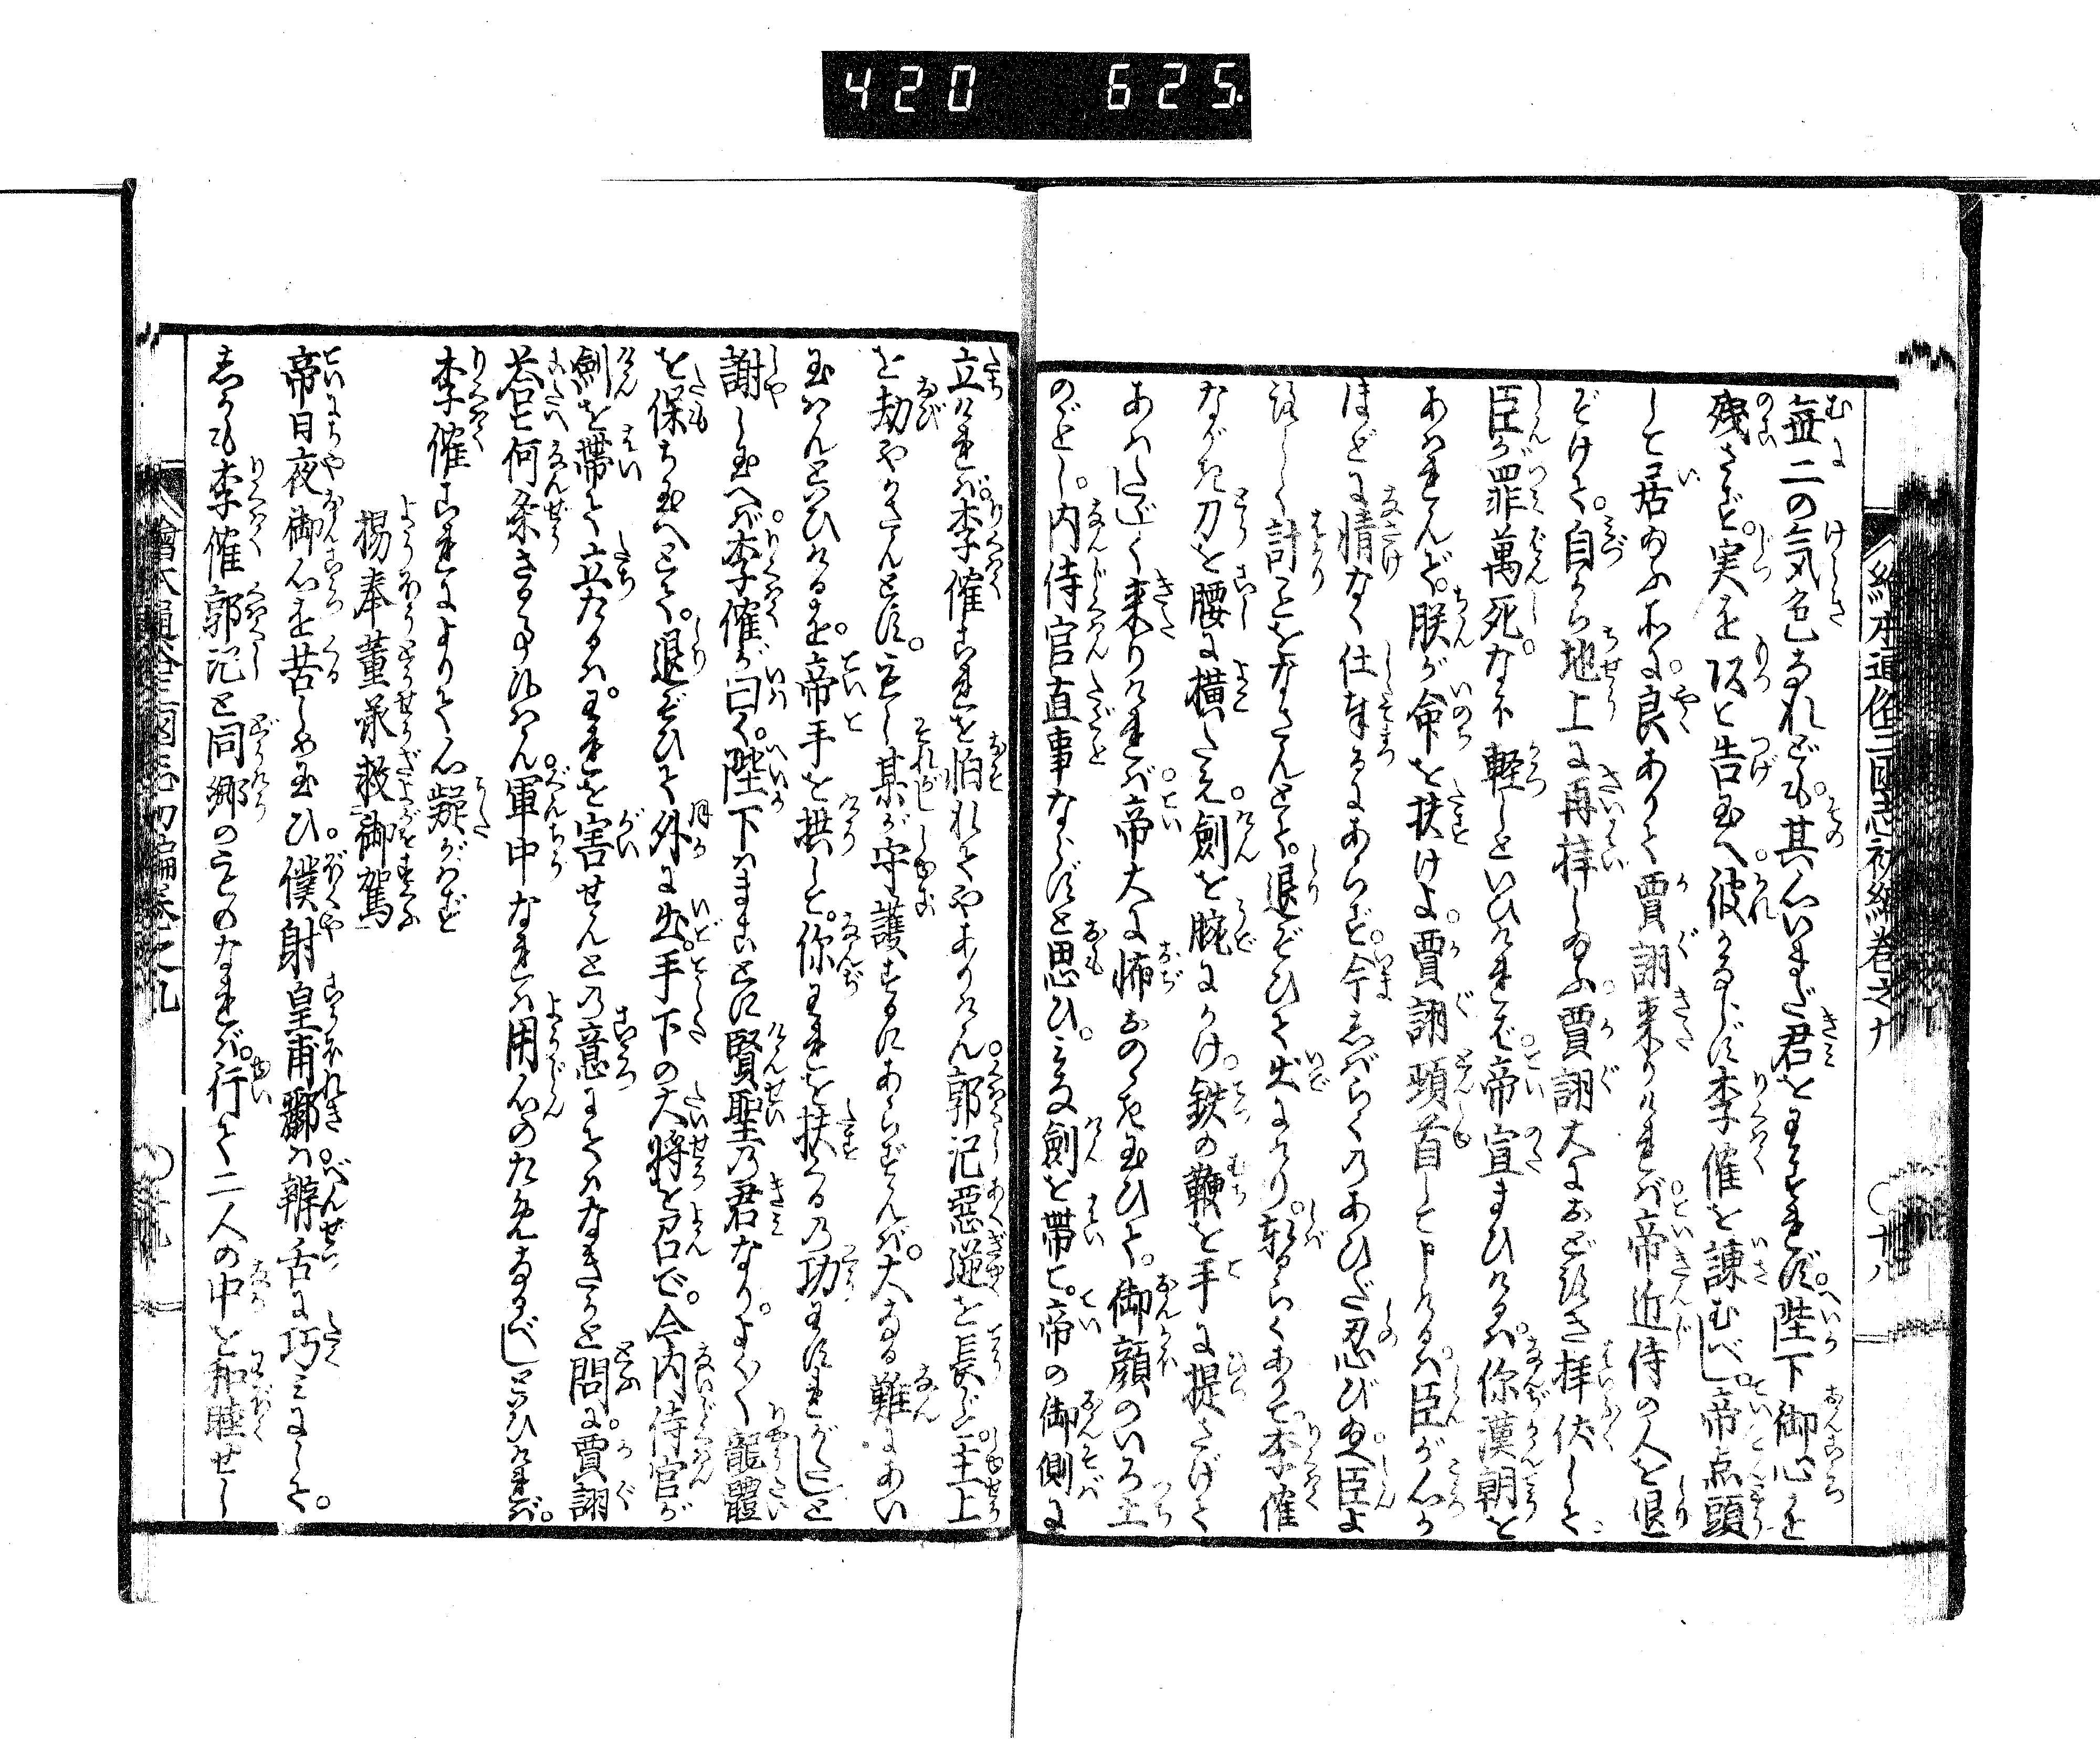 420 625
繪本通俗三國志初編卷之九 〇十八
無二の気色なれども。其心いまだ君をわすれず。陛下御心を
残さず。実を以と告玉へ。彼かならず李傕を諫むべし。帝点頭
して居玉ふ所に。良ありて賈詡来りければ。帝近侍の人を退
ぞけて。自から地上に再拝し玉ふ。賈詡大におどろき拝伏して
臣が罪萬死なを軽しといひければ。帝宣まひけるは。你漢朝を
あはれんで。朕が命を扶けよ。賈詡頓首して申けるは。臣が心か
ほどに情なく仕奉るにあらず。今しばらくのあひだ忍び玉へ。臣よ
ろしく計ことをなさんとて。退ぞひて出にけり。暫らくあつて。李傕
ながき刀を腰に横たえ。剣を腕にかけ。鉄の鞭を手に提さげて
あはたゞしく来りければ。帝大に怖おのゝき玉ひて。御顔のいろ土
のごとし。内侍官直事ならずと思ひ。みな剣を帯て。帝の御側に
立ければ。李傕これを怕れてやありけん。郭汜悪逆を長じ。主上
を劫やかさんとす。もし某が守護するにあらずんば。大なる難にあい
玉はんといひけるを。帝手を拱して。你われを扶くるの功わすれがたしと
謝し玉へば。李傕が曰く。陛下はまことに賢聖の君なり。よろしく龍體
を保ち玉へとて。退ぞひて外に出。手下の大将を召で。今内侍官が
剣を帯て立たるは。われを害せんとの意にてはなきかと問に。賈詡
答て何条さる事候はん。軍中なれば用心のためなるべしといひければ。
李傕これによりて心疑がはず
楊奉董承救御駕
帝日夜御心を苦しめ玉ひ。僕射皇甫酈は辨舌に巧みにして。
しかも李傕郭汜と同郷のものなれば。行て二人の中を和睦せし
繪本通俗三國志初編卷之九